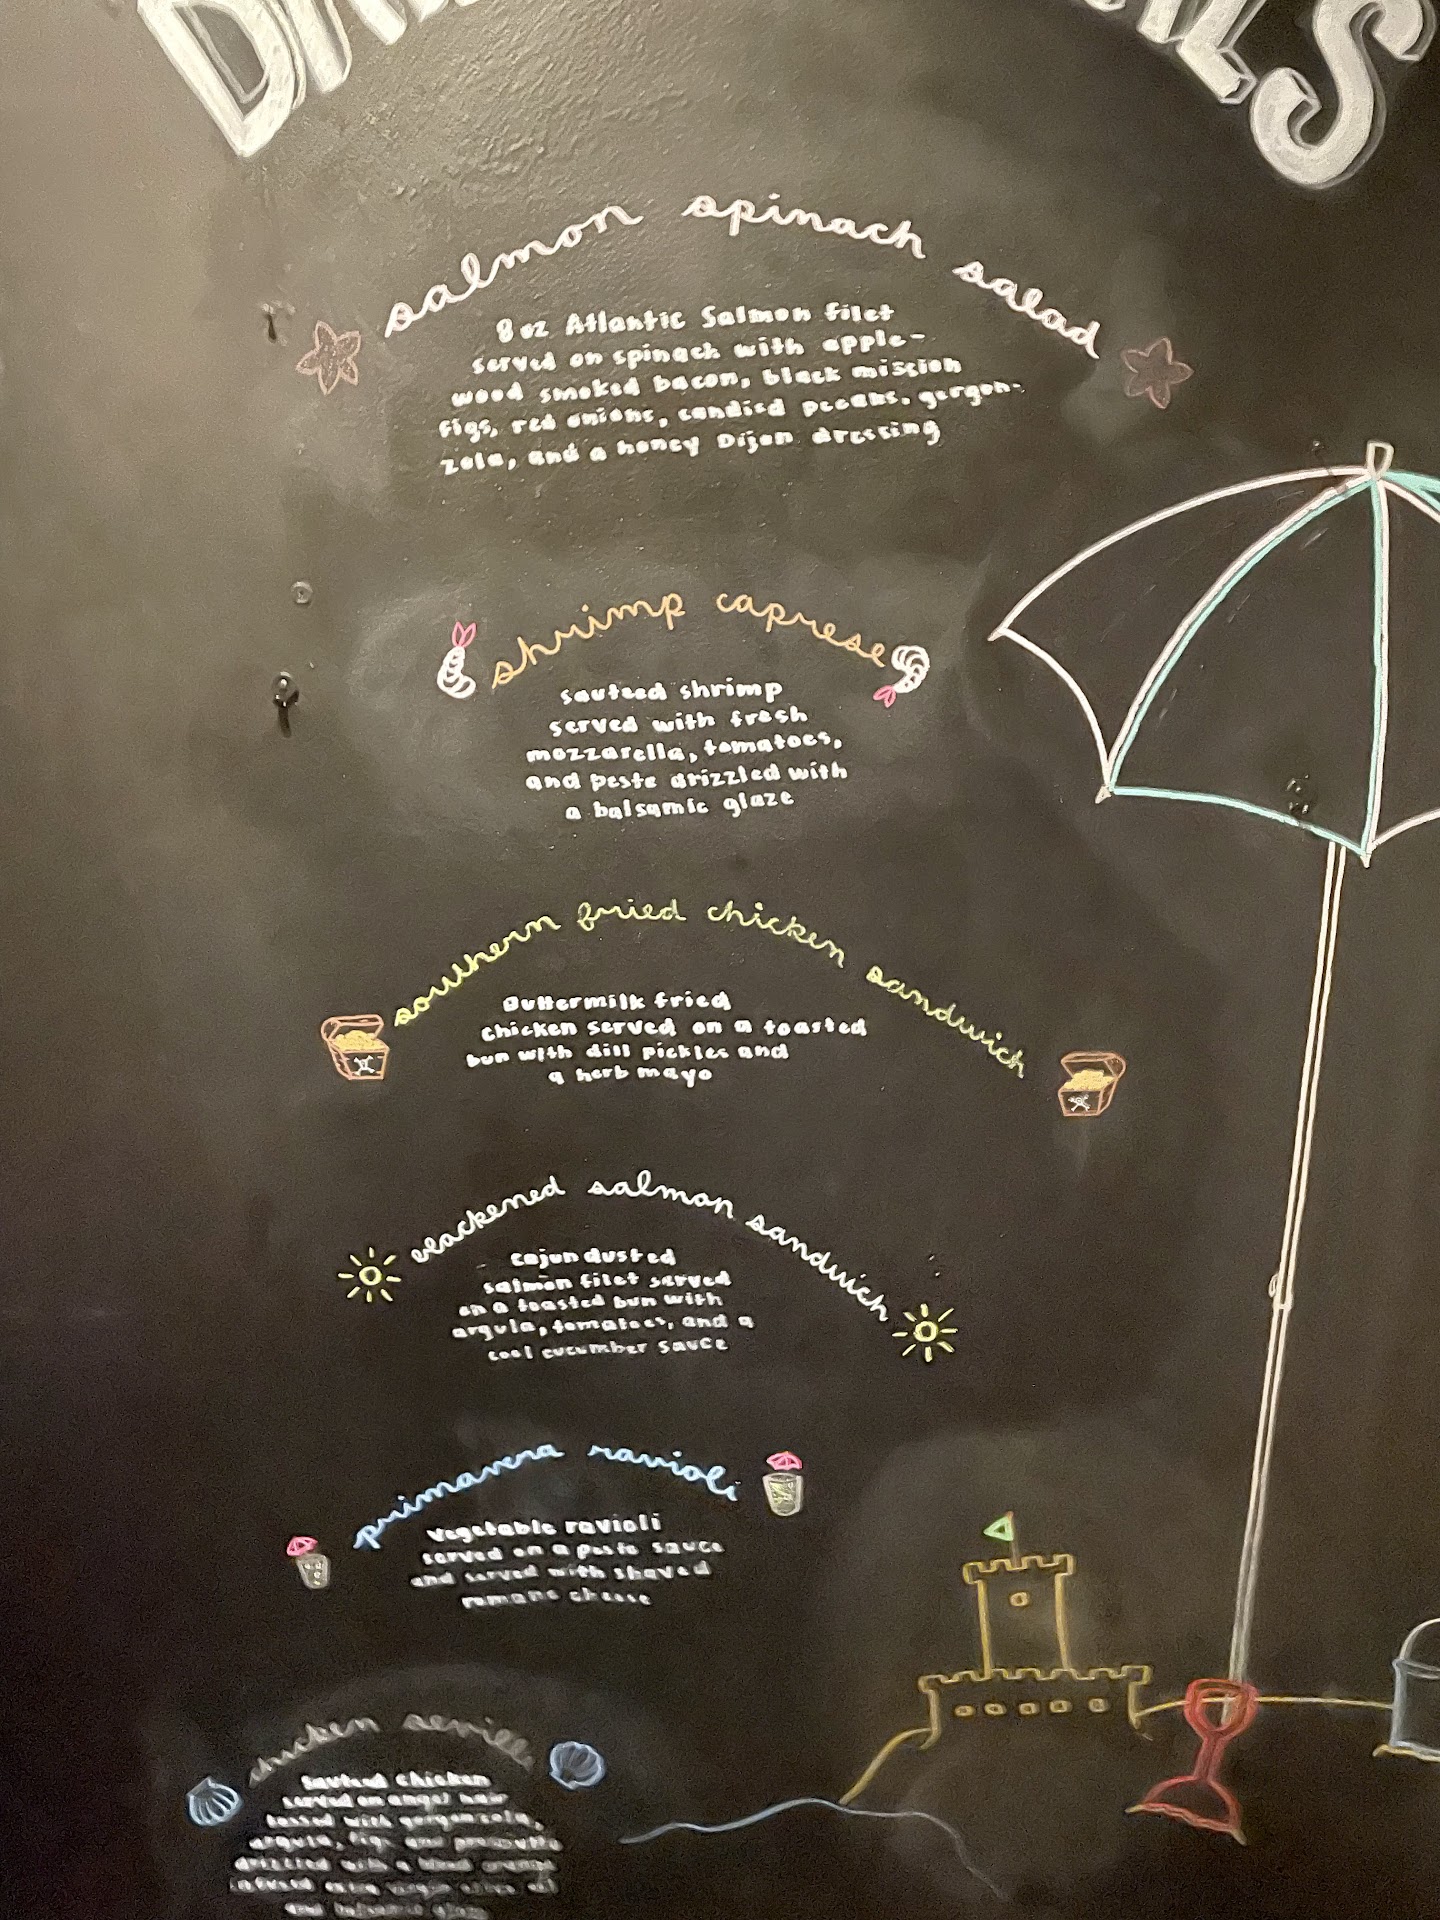 salmon spinach salad
8 oz Atlantic Salmon filet
served on spinach with apple-
wood smoked bacon, black mission
figs, red onions, candied pecans, gorgon-
zola, and a honey Dijon dressing
shrimp caprese
sauteed shrimp
served with fresh
mozzarella, tomatoes,
and pesto drizzled with
a balsamic glaze
southern fried chicken sandwich
Buttermilk fried
chicken served on a toasted
bun with dill pickles and
a herb mayo
blackened salmon sandwich
cajun dusted
salmon filet served
on a toasted bun with
argula, tomatoes, and a
cool cucumber sauce
primavera ravioli
vegetable ravioli
served on a pesto sauce
and served with shaved
romano cheese
chicken
sauteed chicken
served on angel hair
tossed with gorgonzola,
arugula, figs and prosciutto
drizzled with a blood orange
infused extra virgin olive oil